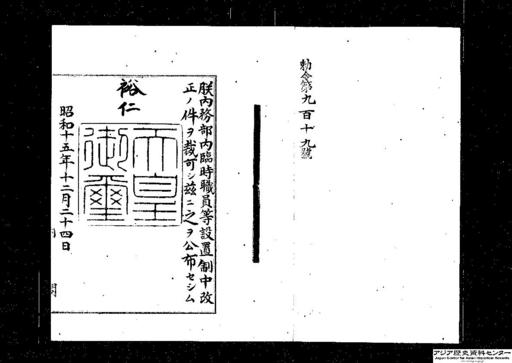 勅令第九百十九號
朕內務部內臨時職員等設置制中改
正ノ件ヲ裁可シ茲ニ之ヲ公布セシム
裕仁
天皇
御璽
昭和十五年十二月二十四日
アジア歴史資料センター
Japan Center for Asian Historical Records